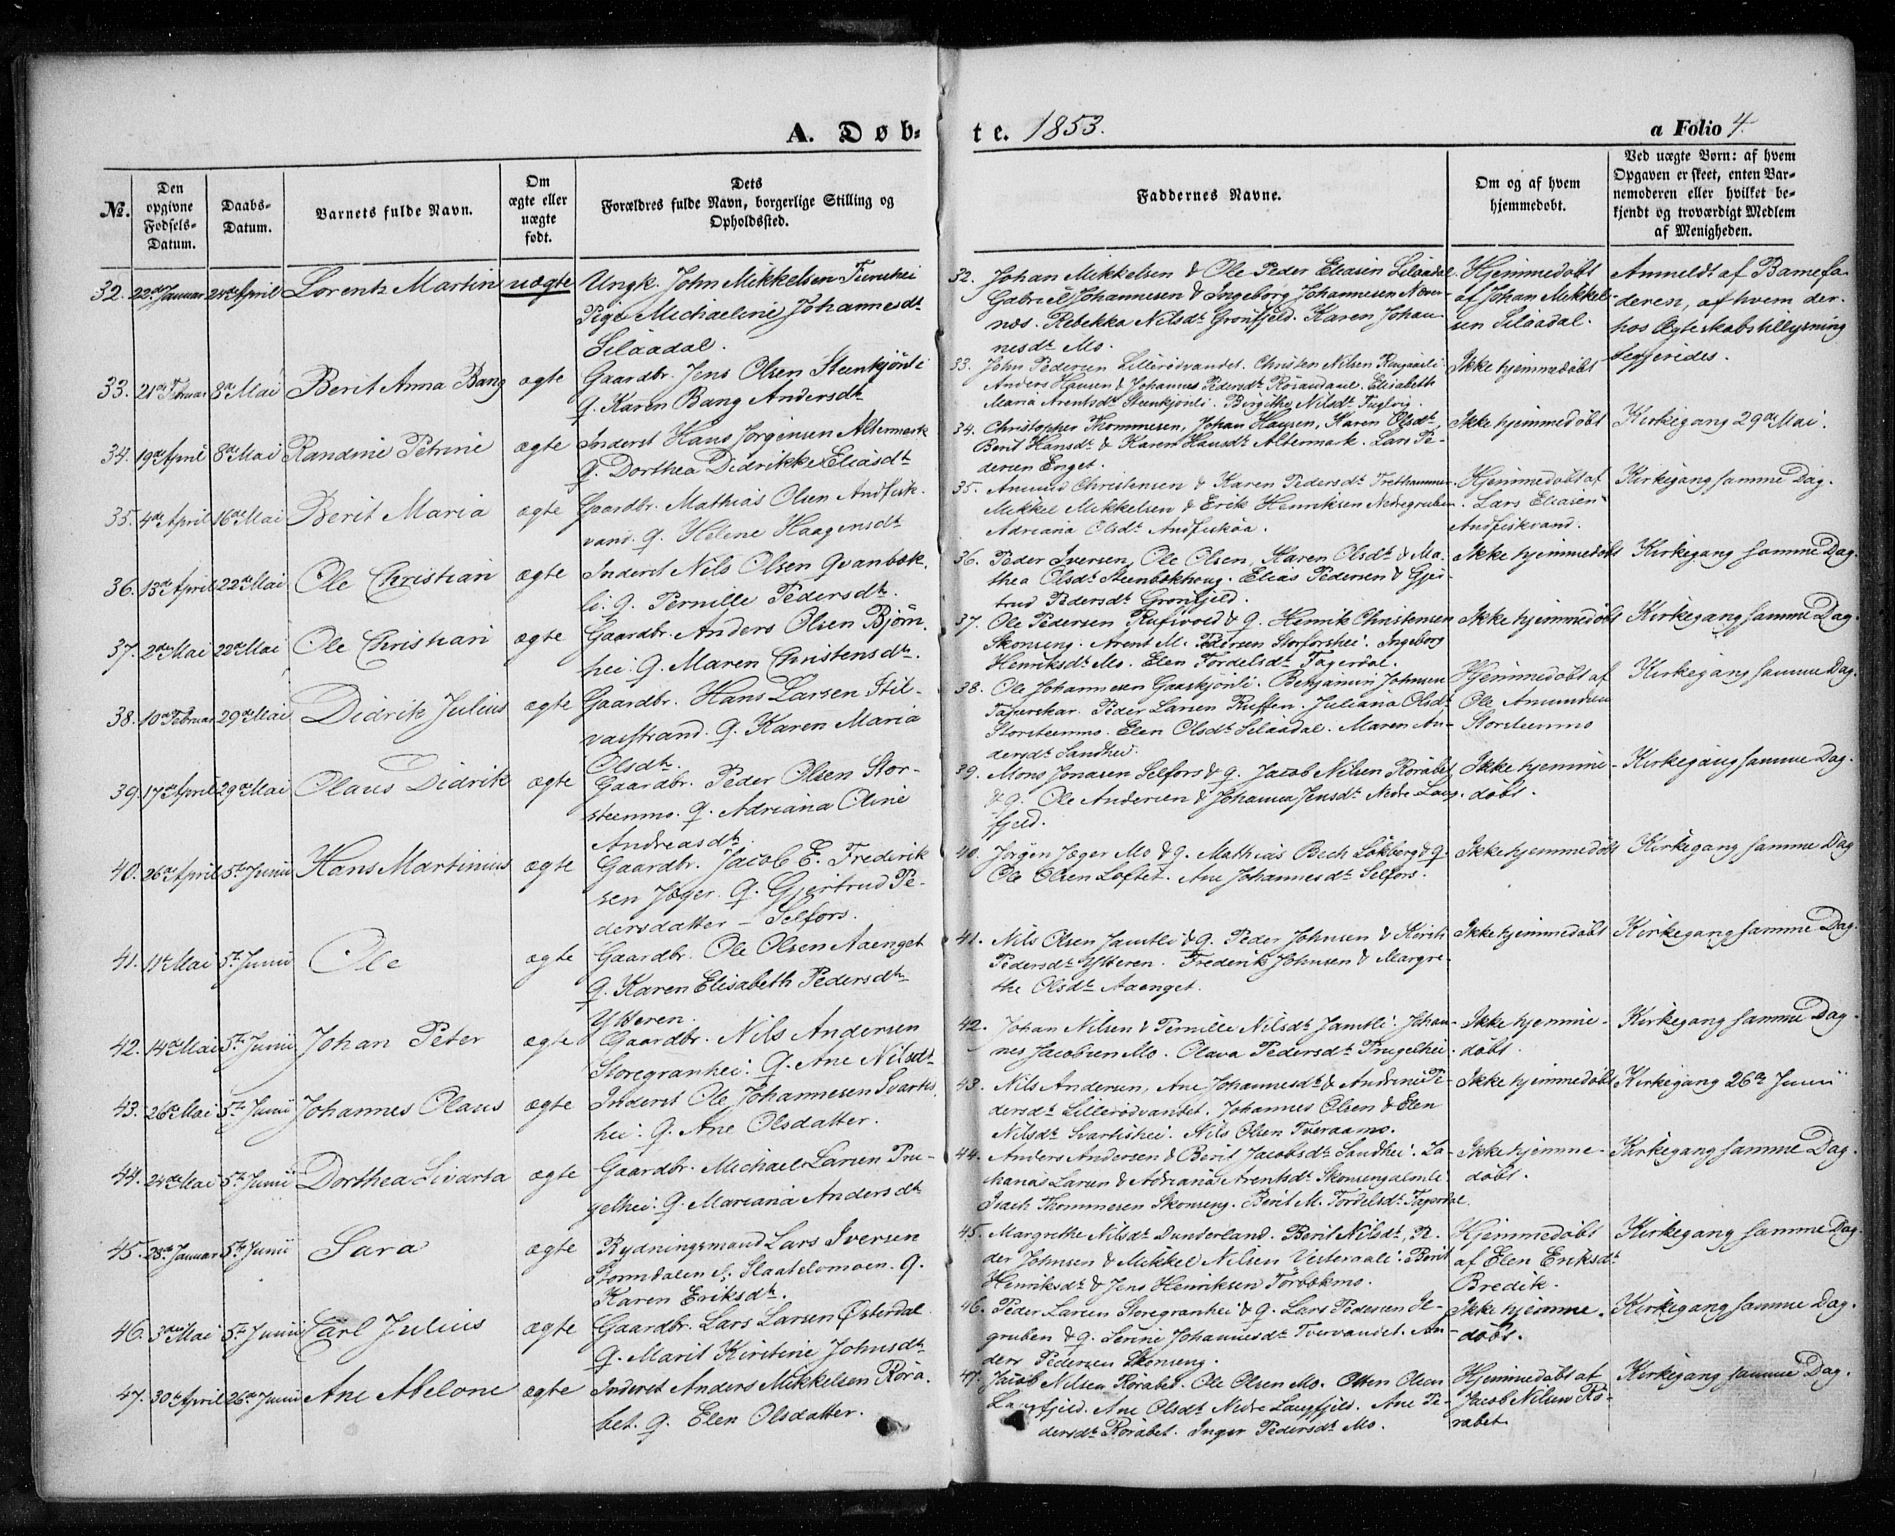 A. Døb-
te. 1853.
a Folio 4.
No.
Den opgivne Fødsels-Datum.
Daabs-Datum.
Barnets fulde Navn.
Om ægte eller uægte født.
Dets Forældres fulde Navn, borgerlige Stilling og Opholdssted.
Faddernes Navne.
Om og af hvem hjemmedøbt.
Ved uægte Børn: af hvem Opgaven er skeet, enten Barnemoderen eller hvilket bekjendt og troværdigt Medlem af Menigheden.
32. 22de Januar 24de April Lorentz Martin uægte
Ungk. John Mikkelsen
Pige Michaeline Johannesdt
Silaadal.
32. Johan Mikkelsen & Ole Peder Eliasen Silaadal
Gabriel Johannesen & Ingeborg Johannesen Næver-
næs. Rebekka Nilsdt Grønfjeld. Karen Johan-
nesdt Mo.
Hjemmedøbt
af Johan Mikkel-
sen Silaadal.
Anmeldt af Barnefa-
deren, af hvem der-
hos Ægteskabstillysning
begjerides.
33. 21de Februar 8de Mai Berit Anna Bang ægte
Gaardbr. Jens Olsen Steenkjønli
q. Karen Bang Andersdt
33. John Pedersen Lillerødvandet. Christen Nilsen
Anders Hansen & Johannes Pedersdt Røsandaae. Elisabeth
Maria Arentsdt Steenkjønli. Birgithe Nilsdt Fuglvig.
Ikke hjemmedøbt
34. 19de April 8de Mai Randine Petrine ægte
Inderst Hans Jørgensen Altermark
q. Dorthea Didrikke Eliasdt
34. Christopher Thommesen, Johan Hansen, Karen Olsdt,
Berit Hansdt & Karen Hansdt Altermark. Lars Pe-
dersen Enget.
Ikke hjemmedøbt
Kirkegang 29de Mai.
35. 4de April 16de Mai Berit Maria ægte
Gaardbr. Mathias Olsen Andfisk-
vand. q. Helene Haagensdt
35. Amund Christensen & Karen Pedersdt Trethammer
Mikkel Mikkelsen & Erik Henriksen Nedregruben
Adriana Olsdt Andfiskaa.
Hjemmedøbt af
Lars Eliasen
Andfiskvand.
Kirkegang samme Dag.
36. 13de April 22de Mai Ole Christian ægte
Inderst Nils Olsen Qvanbæk-
li. q. Pernille Pedersdt.
36. Peder Iversen, Ole Olsen, Karen Olsdt & Ma-
thea Olsdt Steenbækhoug. Elias Pedersen & Gjer-
trud Pedersdt Grønfjeld.
Ikke hjemmedøbt
Kirkegang samme Dag.
37. 2den Mai 22de Mai Ole Christian ægte
Gaardbr. Anders Olsen Bjørn-
hei. q. Maren Christensdt.
37. Ole Pedersen Rufsvold & q. Henrik Christensen
Skonseng. Arent M. Pedersen Storforshei. Ingeborg
Henriksdt Mo. Elen Tordelsdt Fagerdal.
Ikke hjemmedøbt
Kirkegang samme Dag.
38. 10de Februar 29de Mai Didrik Julius ægte
Gaardbr. Hans Larsen Stil-
vasstrand. q. Karen Maria
Olsdt.
38. Ole Johannesen Gaaskjønli. Benjamin Johnsen
Fagerskar. Peder Larsen Ruffen. Juliana Olsdt
Storsteenmo. Elen Olsdt Silaadal. Maren An-
dersdt Sandhei.
Hjemmedøbt af
Ole Amundsen
Storsteenmo
Kirkegang samme Dag.
39. 17de April 29de Mai Olaus Didrik ægte
Gaardbr. Peder Olsen Stor-
steenmo. q. Adriana Oline
Andreasdt.
39. Mons Jonasen Selfors & q. Jacob Nilsen Rørabet
& q. Ole Andersen & Johanna Jensdt Nedre Lang-
fjeld.
Ikke hjemme-
døbt.
Kirkegang samme Dag.
40. 26de April 5te Junii Hans Martinius ægte
Gaardbr. Jacob E. Frederik
sen Jæger. q. Gjertrud Pe-
dersdatter - Selfors.
40. Jørgen Jæger Mo & q. Mathias Bech Løkberg & q.
Ole Olsen Loftet. Ane Johannesdt Selfors.
Ikke hjemmedøbt
Kirkegang samme Dag
41. 11te Mai 5te Junii Ole ægte
Gaardbr. Ole Olsen Aaenget
q. Karen Elisabeth Pedersdt
Ytteren.
41. Nils Olsen Jamtli & q. Peder Johnsen & Kirsti
Pedersdt Ytteren. Frederik Johnsen & Margre-
the Olsdt Aaenget.
Ikke hjemmedøbt
Kirkegang samme Dag.
42. 14de Mai 5te Junii Johan Peter ægte
Gaardbr. Nils Andersen
Storegranhei. q. Ane Nilsdt
42. Johan Nilsen & Pernille Nilsdt Jamtli. Johan-
nes Jacobsen Mo. Olava Pedersdt Prugelhei
Ikke hjemme-
døbt.
Kirkegang samme Dag.
43. 26de Mai 5te Junii Johannes Olaus ægte
Inderst Ole Johannesen Svartis-
hei. q. Ane Olsdatter.
43. Nils Andersen, Ane Johannesdt & Andrine Pe-
dersdt Lillerødvandet. Johannes Olsen & Elen
Nilsdt Svartishei. Nils Olsen Tveraamo.
Ikke hjemmedøbt
Kirkegang 26de Junii
44. 24de Mai 5te Junii Dorthea Sivarta ægte
Gaardbr. Michael Larsen Pru-
gelhei. q. Mariana Andersdt
44. Anders Andersen & Berit Jacobsdt Sandhei. Za-
charias Larsen & Adriana Arentsdt Skonsengdalmli.
Isach Thommesen Skonseng. Berit M. Tordelsdt Fagerdal.
Ikke hjemme-
døbt.
Kirkegang samme Dag.
45. 28de Januar 5te Junii Sara ægte
Rydningsmand Lars Iversen
Slaatelvmoen. q.
Karen Eriksdt.
45. Margrethe Nilsdt Dunderland. Berit Nilsdt, Pe-
der Johnsen & Mikkel Nilsen Vesteraali. Berit
Henriksdt & Jens Henriksen Tørbækmo.
Hjemmedøbt
af Elen Eriksdt
Bredik.
Kirkegang samme Dag.
46. 3die Mai 5te Junii Carl Julius ægte
Gaardbr. Lars Larsen Østerdal
q. Marit Kirstine Johnsdt
46. Peder Larsen Storegranhei & q. Lars Pedersen
gruben & q. Serine Johannesdt Tvervandet. An-
ders Pedersen Skonseng.
Ikke hjemme-
døbt.
Kirkegang samme Dag.
47. 30te April 26de Junii Ane Abelone ægte
Inderst Anders Mikkelsen Røra-
bet. q. Elen Olsdatter.
47. Jacob Nilsen Rørabet. Ole Olsen Mo. Otten Olsen
Langfjeld. Ane Olsdt Nedre Langfjeld. Ane Pe-
dersdt Rørabet. Inger Pedersdt Mo.
Hjemmedøbt af
Jacob Nilsen Rø-
rabet
Kirkegang samme Dag.